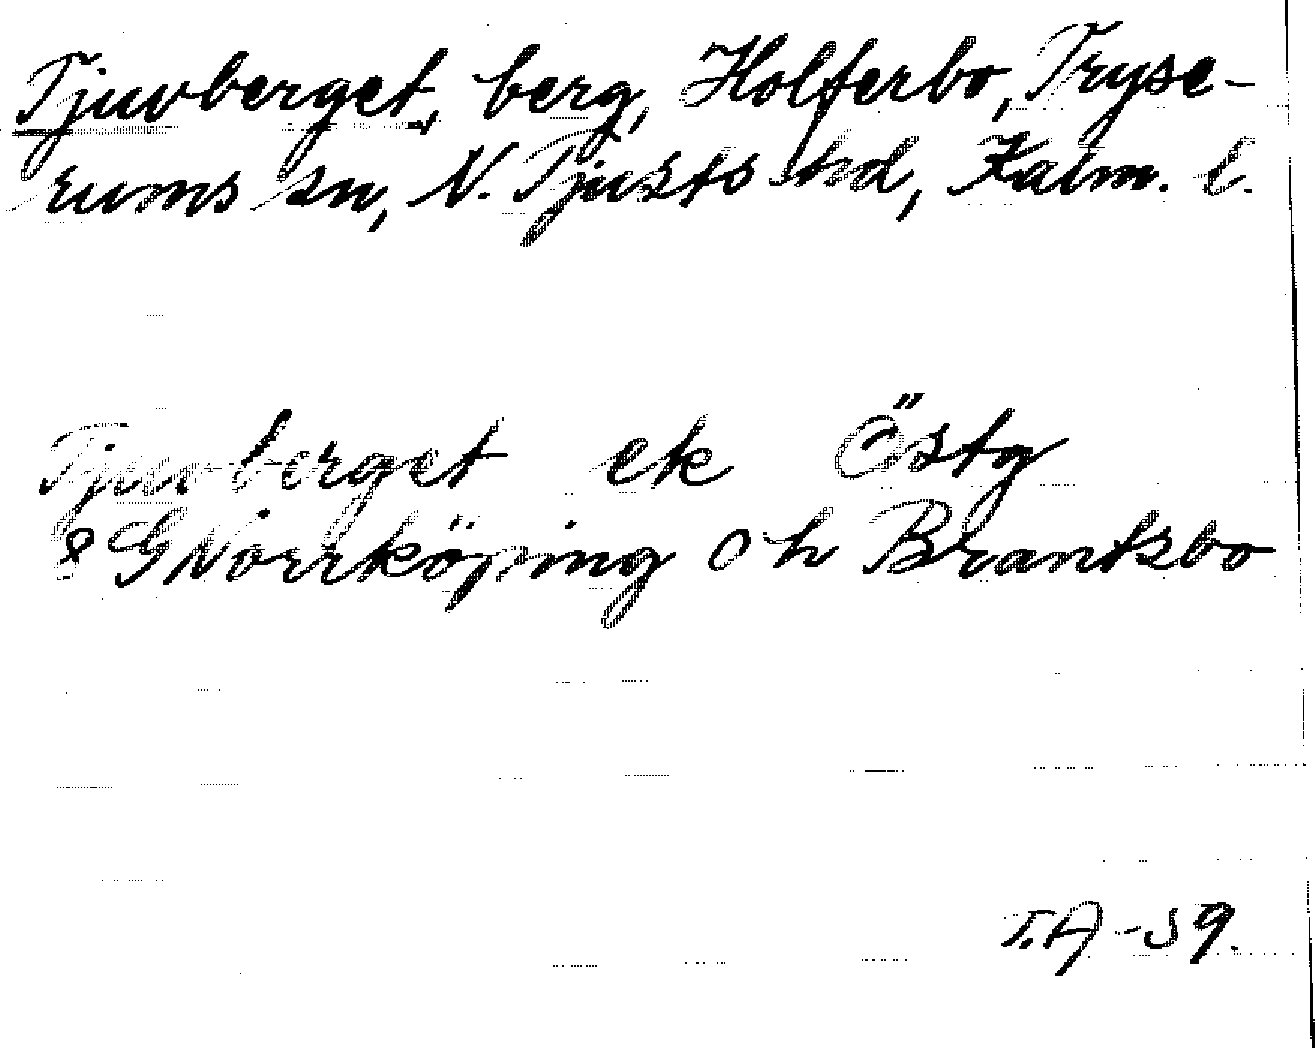 Tjuvberget, berg, Holferbo, Tryse-
rums sn, N. Tjusts hd, Kalm. l.
Tjuvberget ek Östg
& GNorrköping o h Brantsbo
T.A -39.